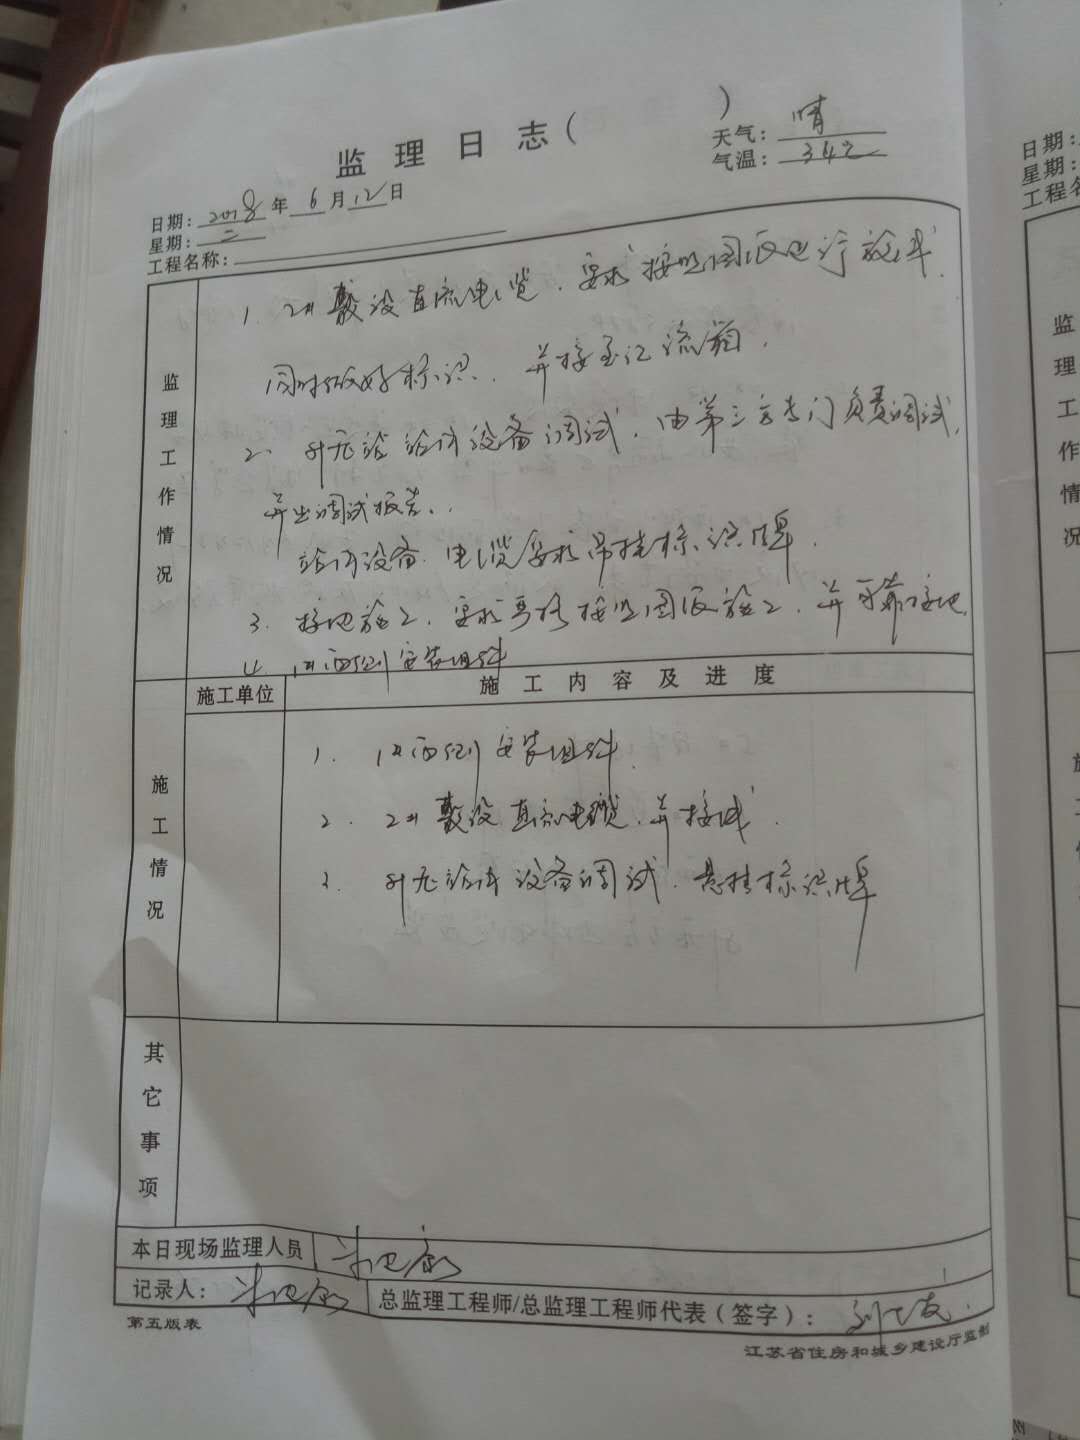 监理日志( )
天气: 晴
气温: 34℃
日期: 2018年6月12日
星期: 二
工程名称:
监理工作情况
1. 2# 敷设直流电缆，要求按照图纸进行放线，
同时做好标识，并接至汇流箱，
2. 升压站站内设备调试，由第三方专门负责调试，
并出调试报告，
站内设备、电缆要求吊挂标识牌，
3. 接地施工，要求严格按照图纸施工，并可靠接地
4. 1#西侧安装组件
施工单位
施工内容及进度
施工情况
1. 1#西侧安装组件
2. 2# 敷设直流电缆，并接线
3. 升压站内设备调试，悬挂标识牌
其它事项
本日现场监理人员
记录人:
总监理工程师/总监理工程师代表(签字):
第五版表
江苏省住房和城乡建设厅监制
日期:
星期:
工程名
监理工作情况